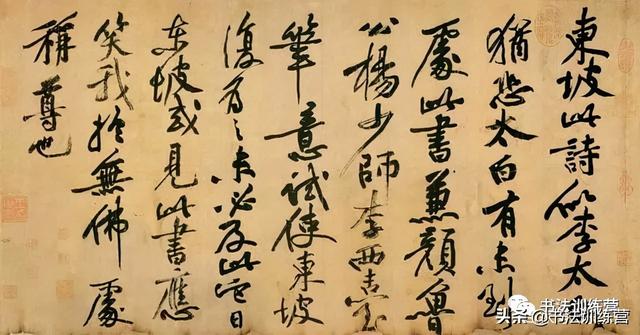 東坡此詩似李太白
猶恐太白有未到
處此書兼顏魯
公楊少師李西臺
筆意試使東坡
復為之未必及此它日
東坡或見此書應
笑我於無佛處
稱尊也
书法训练营
头条 @书法训练营